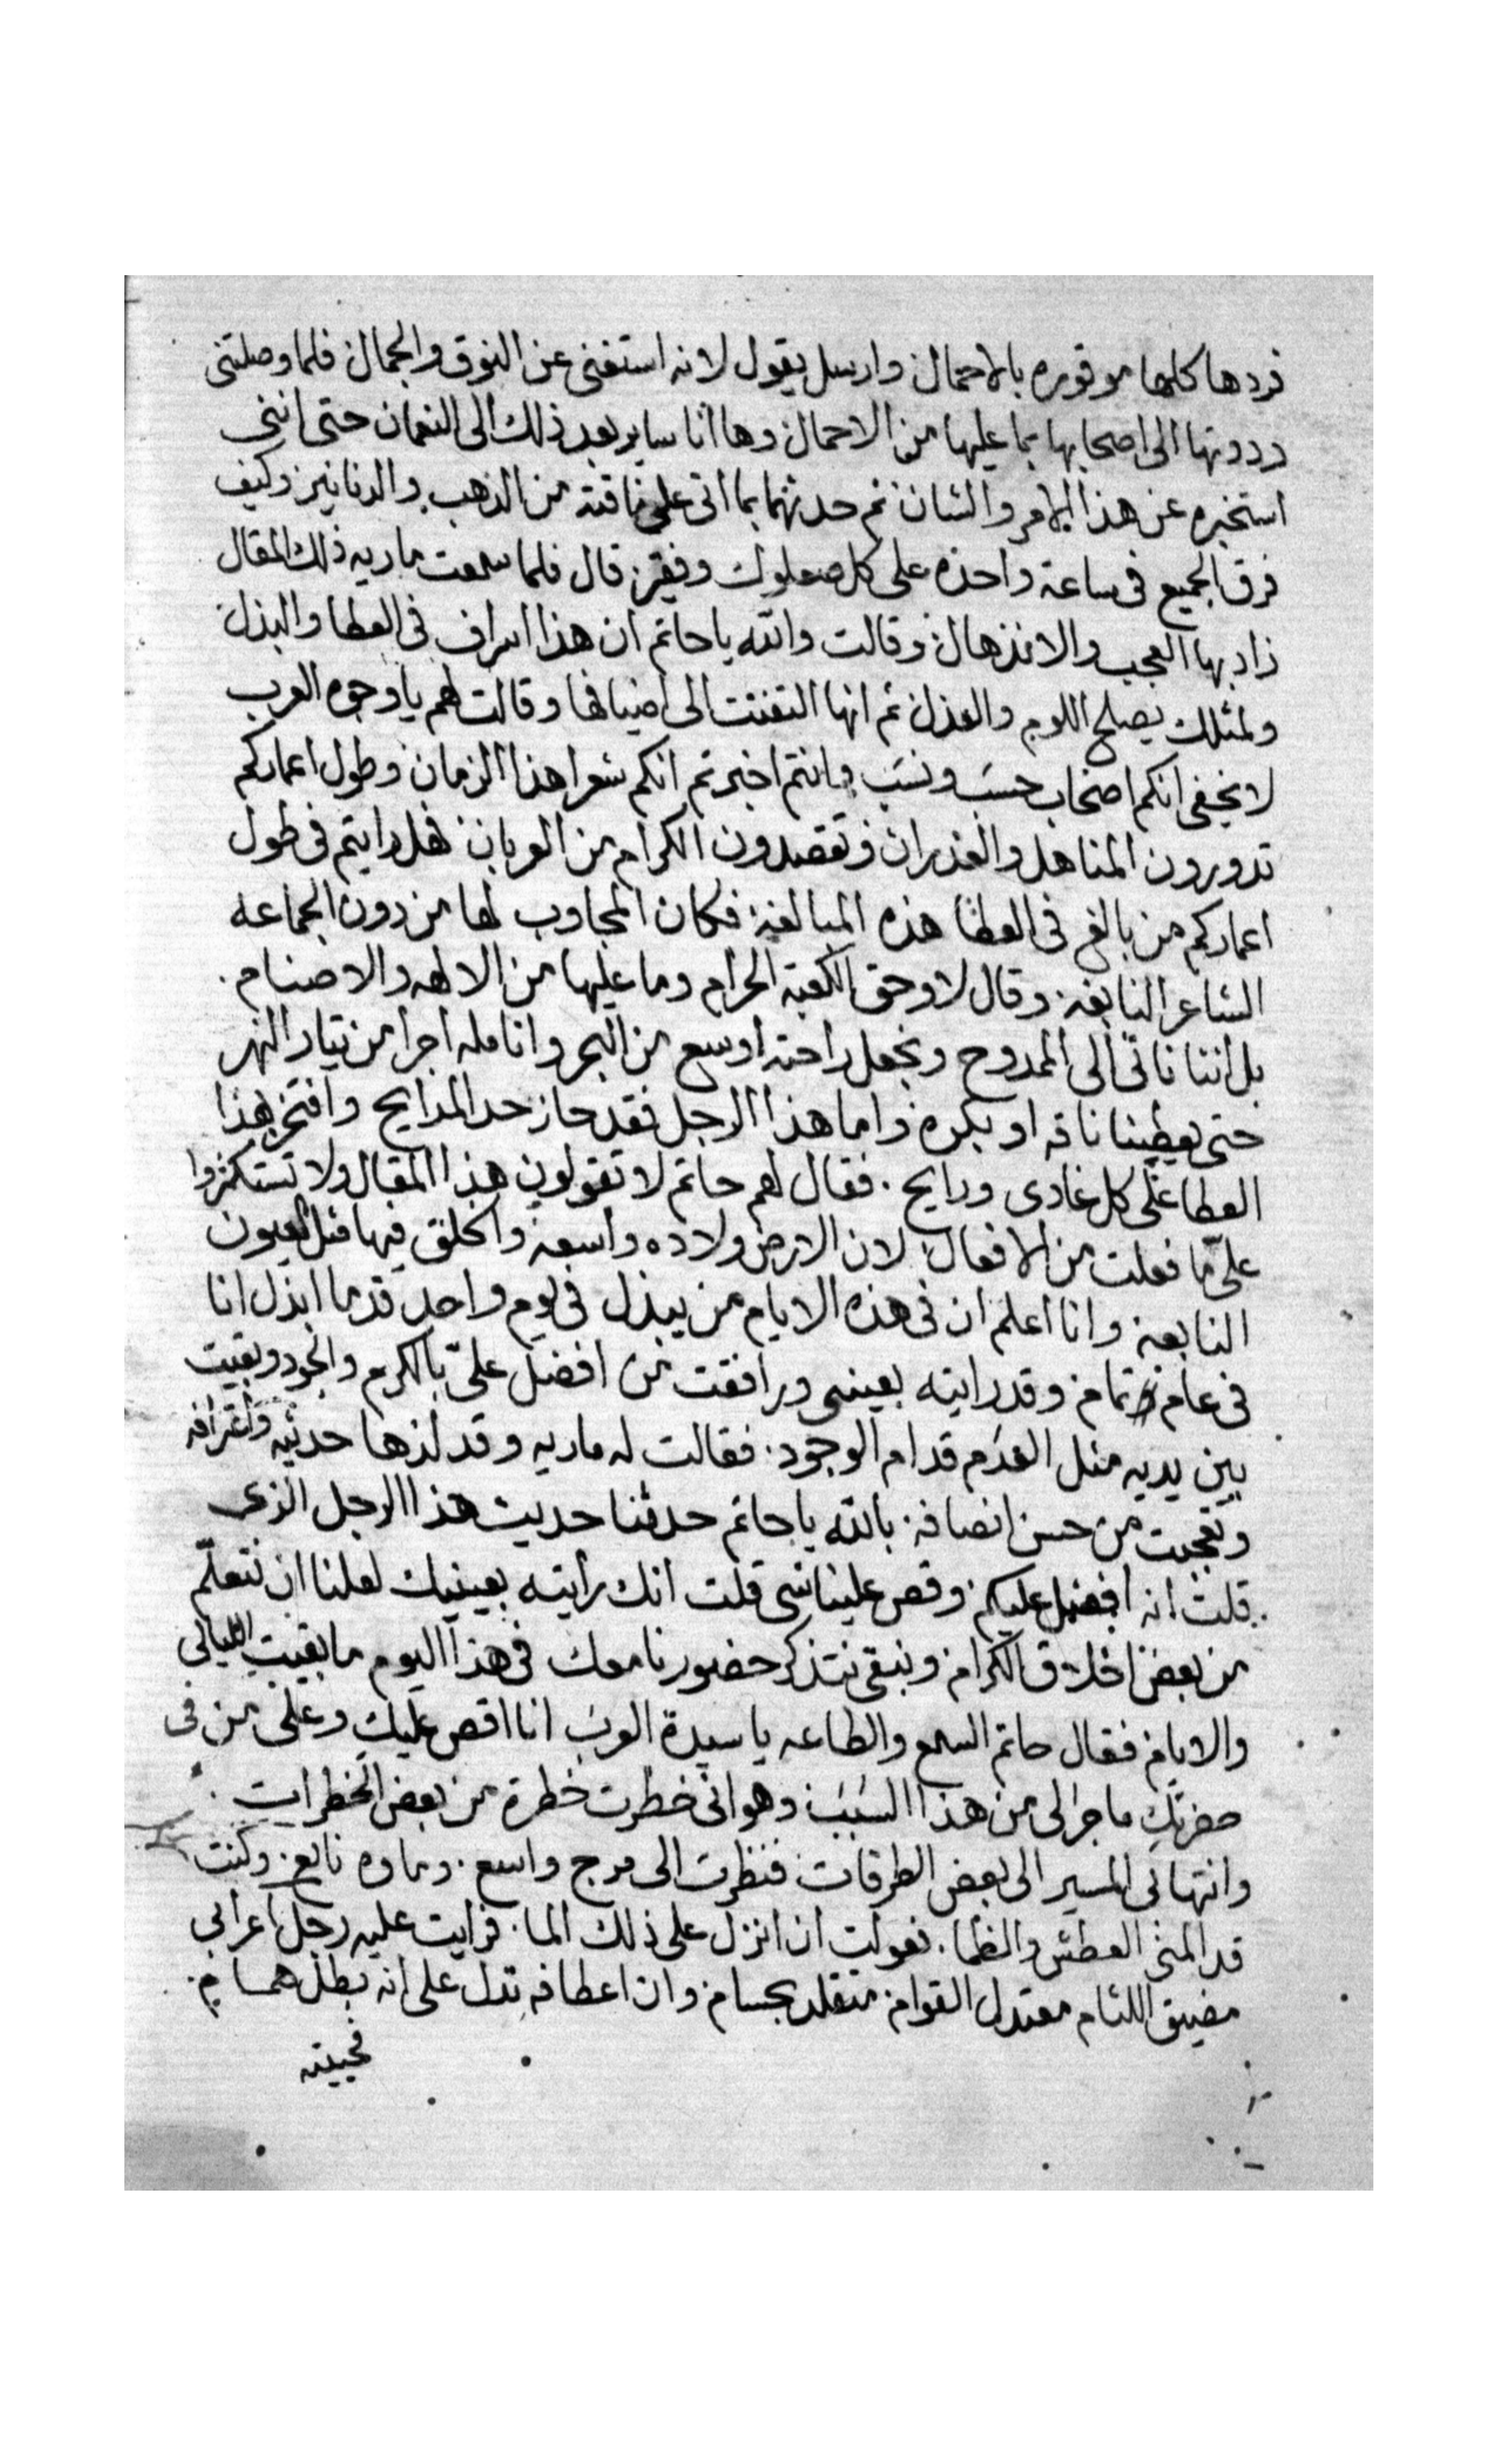 فردها كلها موقوره بالاحمال وارسل يقول لانه استغنى عن النوق والجمال فلما وصلتنى
رددتها الى اصحابها بما عليها من الاحمال وها انا ساير بعد ذلك الى النعمان حتى اننى
استخبره عن هذا الامر والشان ثم حدثها بما اتى على ناقته من الذهب والدنانير وكيف
فرق الجميع فى ساعة واحده على كل صعلوك وفقير قال فلما سمعت ماريه ذلك المقال
زاد بها العجب والانذهال وقالت والله ياحاتم ان هذا اسراف فى العطا والبذل
ولمثلك يصلح اللوم والعذل ثم انها التفتت الى اضيافها وقالت لهم يا وجوه العرب
لا يخفى انكم اصحاب حسب ونسب وانتم اخبرتم انكم شعرا هذا الزمان وطول اعماركم
تدورون المناهل والغدران وتقصدون الكرام من العربان فهل رايتم فى طول
اعماركم من بالغ فى العطا هذه المبالغة فكان المجاوب لها من دون الجماعه
الشاعر النابغة وقال لا وحق الكعبة الحرام وما عليها من الالهه والاصنام .
بل اننا ناتى الى الممدوح ونجعل راحته اوسع من البحر وانامله اجرا من تيار النهر
حتى يعطينا ناقه او بكره واما هذا الرجل فقد حاز حد المدايح وافتخر بهذا
العطا على كل غادى ورايح . فقال لهم حاتم لا تقولون هذا المقال ولا تستكثروا
علىّ ما فعلت من الافعال لان الارض ولاده واسعة والخلق فيها مثل العيون
النابعة وانا اعلم ان فى هذه الايام من يبذل فى يوم واحد قد ما ابذل انا
فى عام تمام وقد رايته بعينى ورافقت من افضل علىّ بالكرم والجود وبقيت
بين يديه مثل العدم قدام الوجود . فقالت له ماريه وقد لذها حديثه واعترافه
وتعجبت من حسن انصافه بالله ياحاتم حدثنا حديث هذا الرجل الذى
قلت انه افضل عليكم وقص علينا شى قلت انك رايته بعينيك لعلنا ان نتعلّم
من بعض اخلاق الكرام ونبقى نتذكر حضورنا معك فى هذا اليوم ما بقيت الليالى
والايام فقال حاتم السمع والطاعه يا سيدة العرب انا اقص عليك وعلى من فى
حضرتك ما جرا لى من هذا السبب وهو انى خطرت خطرة من بعض الخطرات .
وانتها بى المسير الى بعض الطرقات فنظرت الى مرج واسع . وماوه نابع وكنت
قد المنى العطش والظما . فعولت ان انزل على ذلك الما . فرايت عليه رجل اعرابى
مضيق اللثام معتدل القوام متقلد بحسام وان اعطافه تدل على انه بطل همام .
فحييته